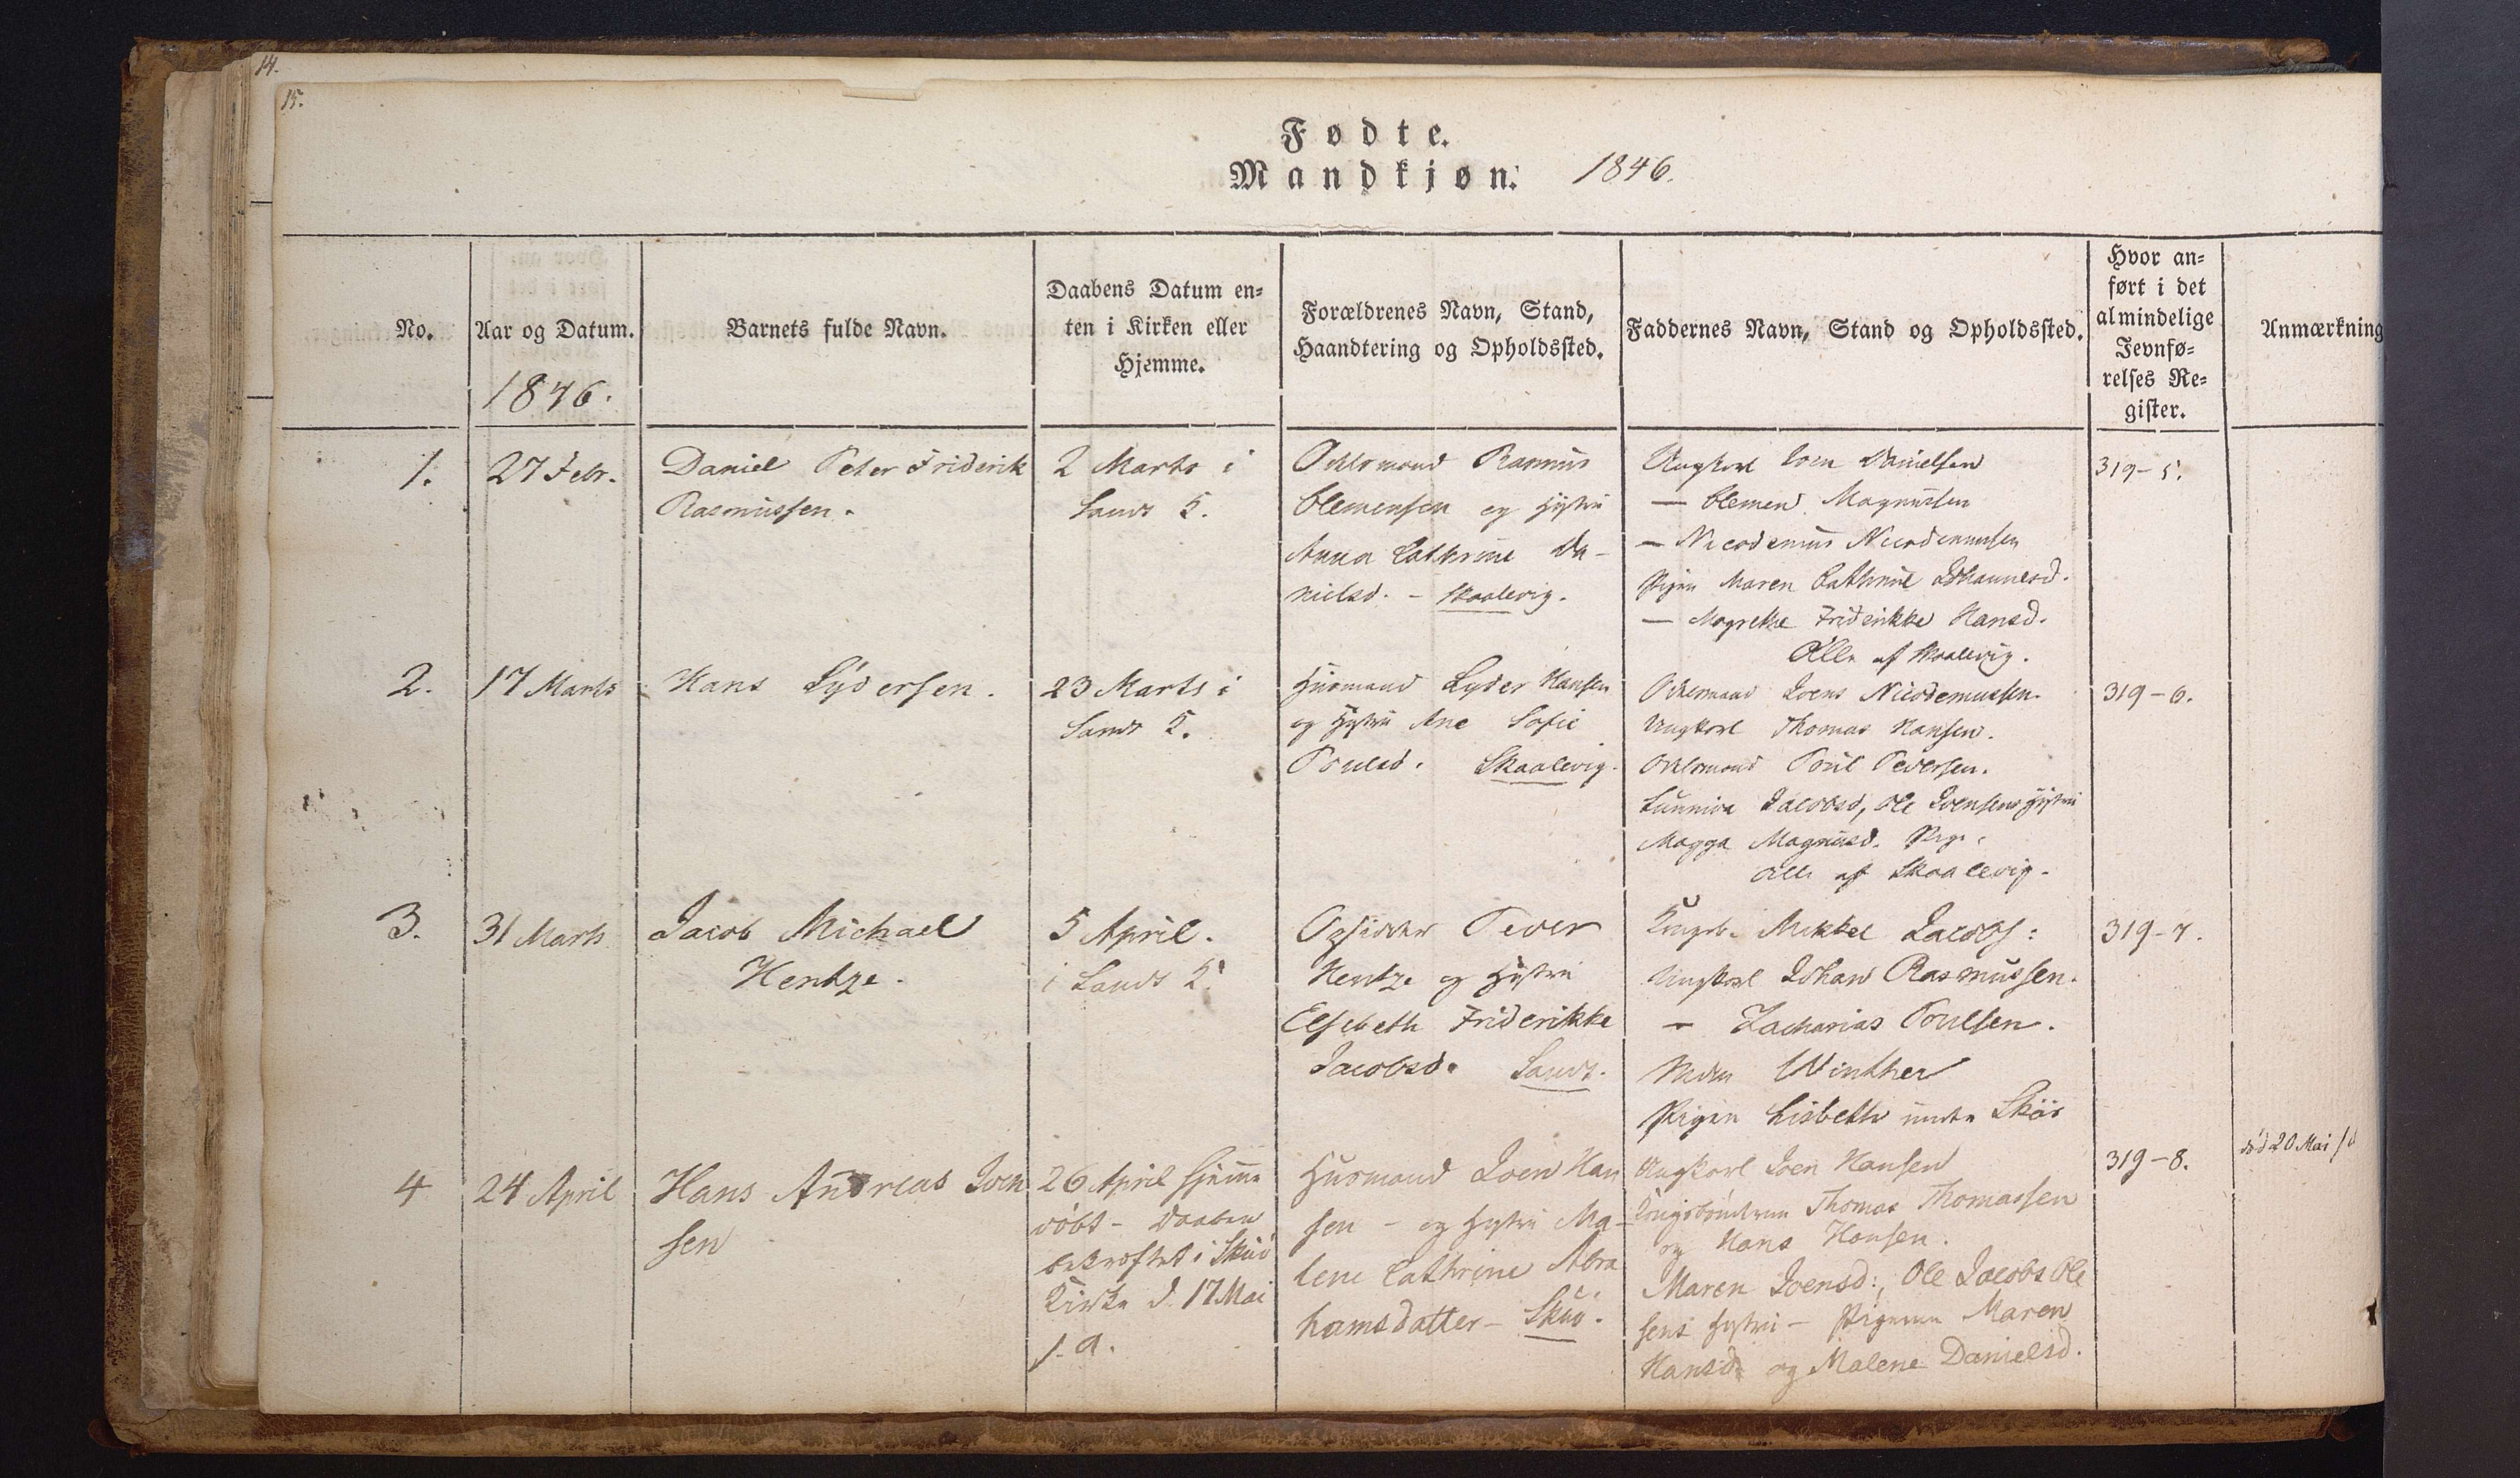 14.
15.
Fødte.
Mandkjøn. 1846.
No.
Aar og Datum.
1846.
Barnets fulde Navn.
Daabens Datum en=
ten i Kirken eller
Hjemme.
Forældrenes Navn, Stand,
Haandtering og Opholdssted.
Faddernes Navn, Stand og Opholdssted.
Hvor an=
ført i det
almindelige
Jevnfø=
relses Re=
gister.
Anmærkning
1.
27 Febr.
Daniel Peter Friderik
Rasmussen.
2 Marts i
Sands K.
Odelsmand Rasmus
Clemensen og Hustru
Anna Cathrine Da-
nielsd. - Skaalevig.
Ungkarl Joen Danielsen
— Clemen Magnussen
— Nicodemus Nicodemussen
Pigen Maren Cathrine Johannesd.
— Magrethe Friderikke Hansd.
Alle af Skaalevig.
319-5.
2.
17 Marts
Hans Lydersen.
23 Marts i
Sands K.
Huusmand Lyder Hansen
og Hustru Ane Sofie
Poulsd. Skaalevig.
Odelsmand Joens Nicodemussen.
Ungkarl Thomas Hansen.
Odelsmand Poul Pedersen.
Sunniva Jacobsd, Ole Joensens Hustru
Magga Magnusd. Pige.
Alle af Skaalevig.
319-6.
3.
31 Marts
Jacob Michael
Hentze.
5 April.
i Sands K.
Opsidder Peder
Hentze og Hustru
Elsebeth Friderikke
Jacobsd. Sands.
Kongsb. Mikkel Jacobs:
Ungkarl Johan Rasmussen.
— Zacharias Poulsen.
Mdm Winther
Pigen Lisbeth Skor
319-7.
4
24 April
Hans Andreas Joen
sen
26 April hjemme
døbt - Daaben
bekræftet i Skuø
Kirke d. 17 Mai
s. a.
Huusmand Joen Han
sen - og Hustru Ma-
lene Cathrine Abra
hamsdatter - Skuø.
Ungkarl Joen Hansen
Kongsbønderne Thomas Thomassen
og Hans Hansen.
Maren Joensd:, Ole Jacobs Ole
sens Hustru - Pigerne Maren
Hansd og Malene Danielsd.
319-8.
død 20 Mai